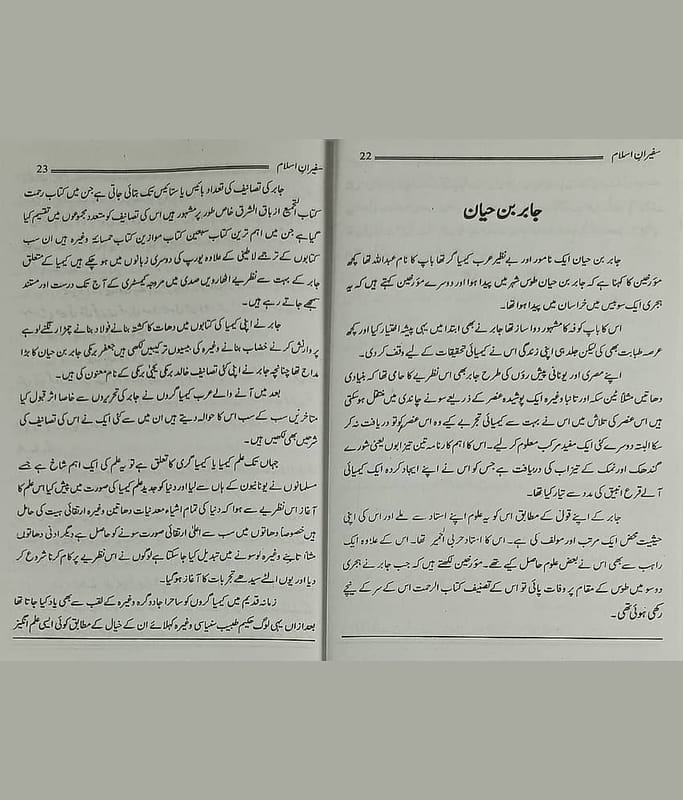 سفیرانِ اسلام 22
جابر بن حیان
جابر بن حیان ایک نامور اور بے نظیر عرب کیمیا گر تھا باپ کا نام عبداللہ تھا کچھ
مؤرخین کا کہنا ہے کہ جابر بن حیان طوس شہر میں پیدا ہوا اور دوسرے مؤرخین کہتے ہیں کہ یہ
ہجری ایک سو بیس میں خراسان میں پیدا ہوا تھا۔
اس کا باپ کوفہ کا مشہور دوا ساز تھا جابر نے بھی ابتدا میں یہی پیشہ اختیار کیا اور کچھ
عرصہ طبابت بھی کی لیکن جلد ہی اپنی زندگی اس نے کیمیائی تحقیقات کے لیے وقف کر دی۔
اپنے مصری اور یونانی پیش روؤں کی طرح جابر بھی اس نظریے کا حامی تھا کہ بنیادی
دھاتیں مثلاً ٹین سکہ اور تانبا وغیرہ ایک پوشیدہ عنصر کے ذریعے سونے چاندی میں منتقل ہو سکتی
ہیں اس عنصر کی تلاش میں اس نے بہت سے کیمیائی تجربے کیے وہ اس عنصر کو تو دریافت نہ کر
سکا البتہ دوسرے کئی ایک مفید مرکب معلوم کر لیے۔ اس کا اہم کارنامہ تین تیزابوں یعنی شورے
گندھک اور نمک کے تیزاب کی دریافت ہے جس کو اس نے اپنے ایجاد کردہ ایک کیمیائی
آلے قرع انبیق کی مدد سے تیار کیا تھا۔
جابر کے اپنے قول کے مطابق اس کو یہ علوم اپنے استاد سے ملے اور اس کی اپنی
حیثیت محض ایک مرتب اور مولف کی ہے۔ اس کا استاد حربی الحمیر تھا۔ اس کے علاوہ ایک
راہب سے بھی اس نے بعض علوم حاصل کیے تھے۔ مؤرخین لکھتے ہیں کہ جب جابر نے ہجری
دو سو میں طوس کے مقام پر وفات پائی تو اس کے تصنیف کتاب الرحمت اس کے سر کے نیچے
رکھی ہوئی تھی۔
سفیرانِ اسلام 23
جابر کی تصانیف کی تعداد بائیس یا ستائیس تک بتائی جاتی ہے جن میں کتاب رحمت
کتاب التجمیع از باق الشرق خاص طور پر مشہور ہیں اس کی تصانیف کو متعدد مجموعوں میں تقسیم کیا
گیا ہے جن میں اہم ترین کتاب سبعین کتاب موازین کتاب خمسائۃ وغیرہ ہیں ان سب
کتابوں کے ترجمے لاطینی کے علاوہ یورپ کی دوسری زبانوں میں ہو چکے ہیں کیمیا کے متعلق
جابر کے بہت سے نظریے اٹھارویں صدی میں مروجہ کیمسٹری کے آج تک درست اور مستند
سمجھے جاتے رہے ہیں۔
جابر نے اپنی کیمیا کی کتابوں میں دھات کا کشتہ بنانے فولاد بنانے چمڑا رنگنے لوہے
پر وارنش کرنے خضاب بنانے وغیرہ کی بیسیوں ترکیبیں لکھی ہیں جعفر برمکی جابر بن حیان کا بڑا
مداح تھا چنانچہ جابر نے اپنی کئی تصانیف خالد برمکی یحییٰ برمکی کے نام معنون کی ہیں۔
بعد میں آنے والے عرب کیمیا گروں نے جابر کی تحریروں سے خاصا اثر قبول کیا
متاخرین سب کے سب اس کا حوالہ دیتے ہیں ان میں سے کئی ایک نے اس کی تصانیف کی
شرحیں بھی لکھیں ہیں۔
جہاں تک علم کیمیا یا کیمیا گری کا تعلق ہے تو یہ علم کی ایک اہم شاخ ہے جسے
مسلمانوں نے یونانیوں کے ہاں سے لیا اور دنیا کو جدید علم کیمیا کی صورت میں پیش کیا اس علم کا
آغاز اس نظریے سے ہوا کہ دنیا کی تمام اشیاء معدنیات دھاتیں وغیرہ ارتقائی ہیت کی حامل
ہیں خصوصاً دھاتوں میں سب سے اعلیٰ ارتقائی صورت سونے کو حاصل ہے دیگر ادنی دھاتوں
مثلاً تانبے وغیرہ کو سونے میں تبدیل کیا جا سکتا ہے لوگوں نے اس نظریے پر کام کرنا شروع کر
دیا اور یوں الٹے سیدھے تجربات کا آغاز ہو گیا۔
زمانہ قدیم میں کیمیا گروں کو ساحر یا جادو گر وغیرہ کے لقب سے بھی یاد کیا جاتا تھا
بعد ازاں یہی لوگ حکیم طبیب سنیاسی وغیرہ کہلائے ان کے خیال کے مطابق کوئی ایسی علم انگیز